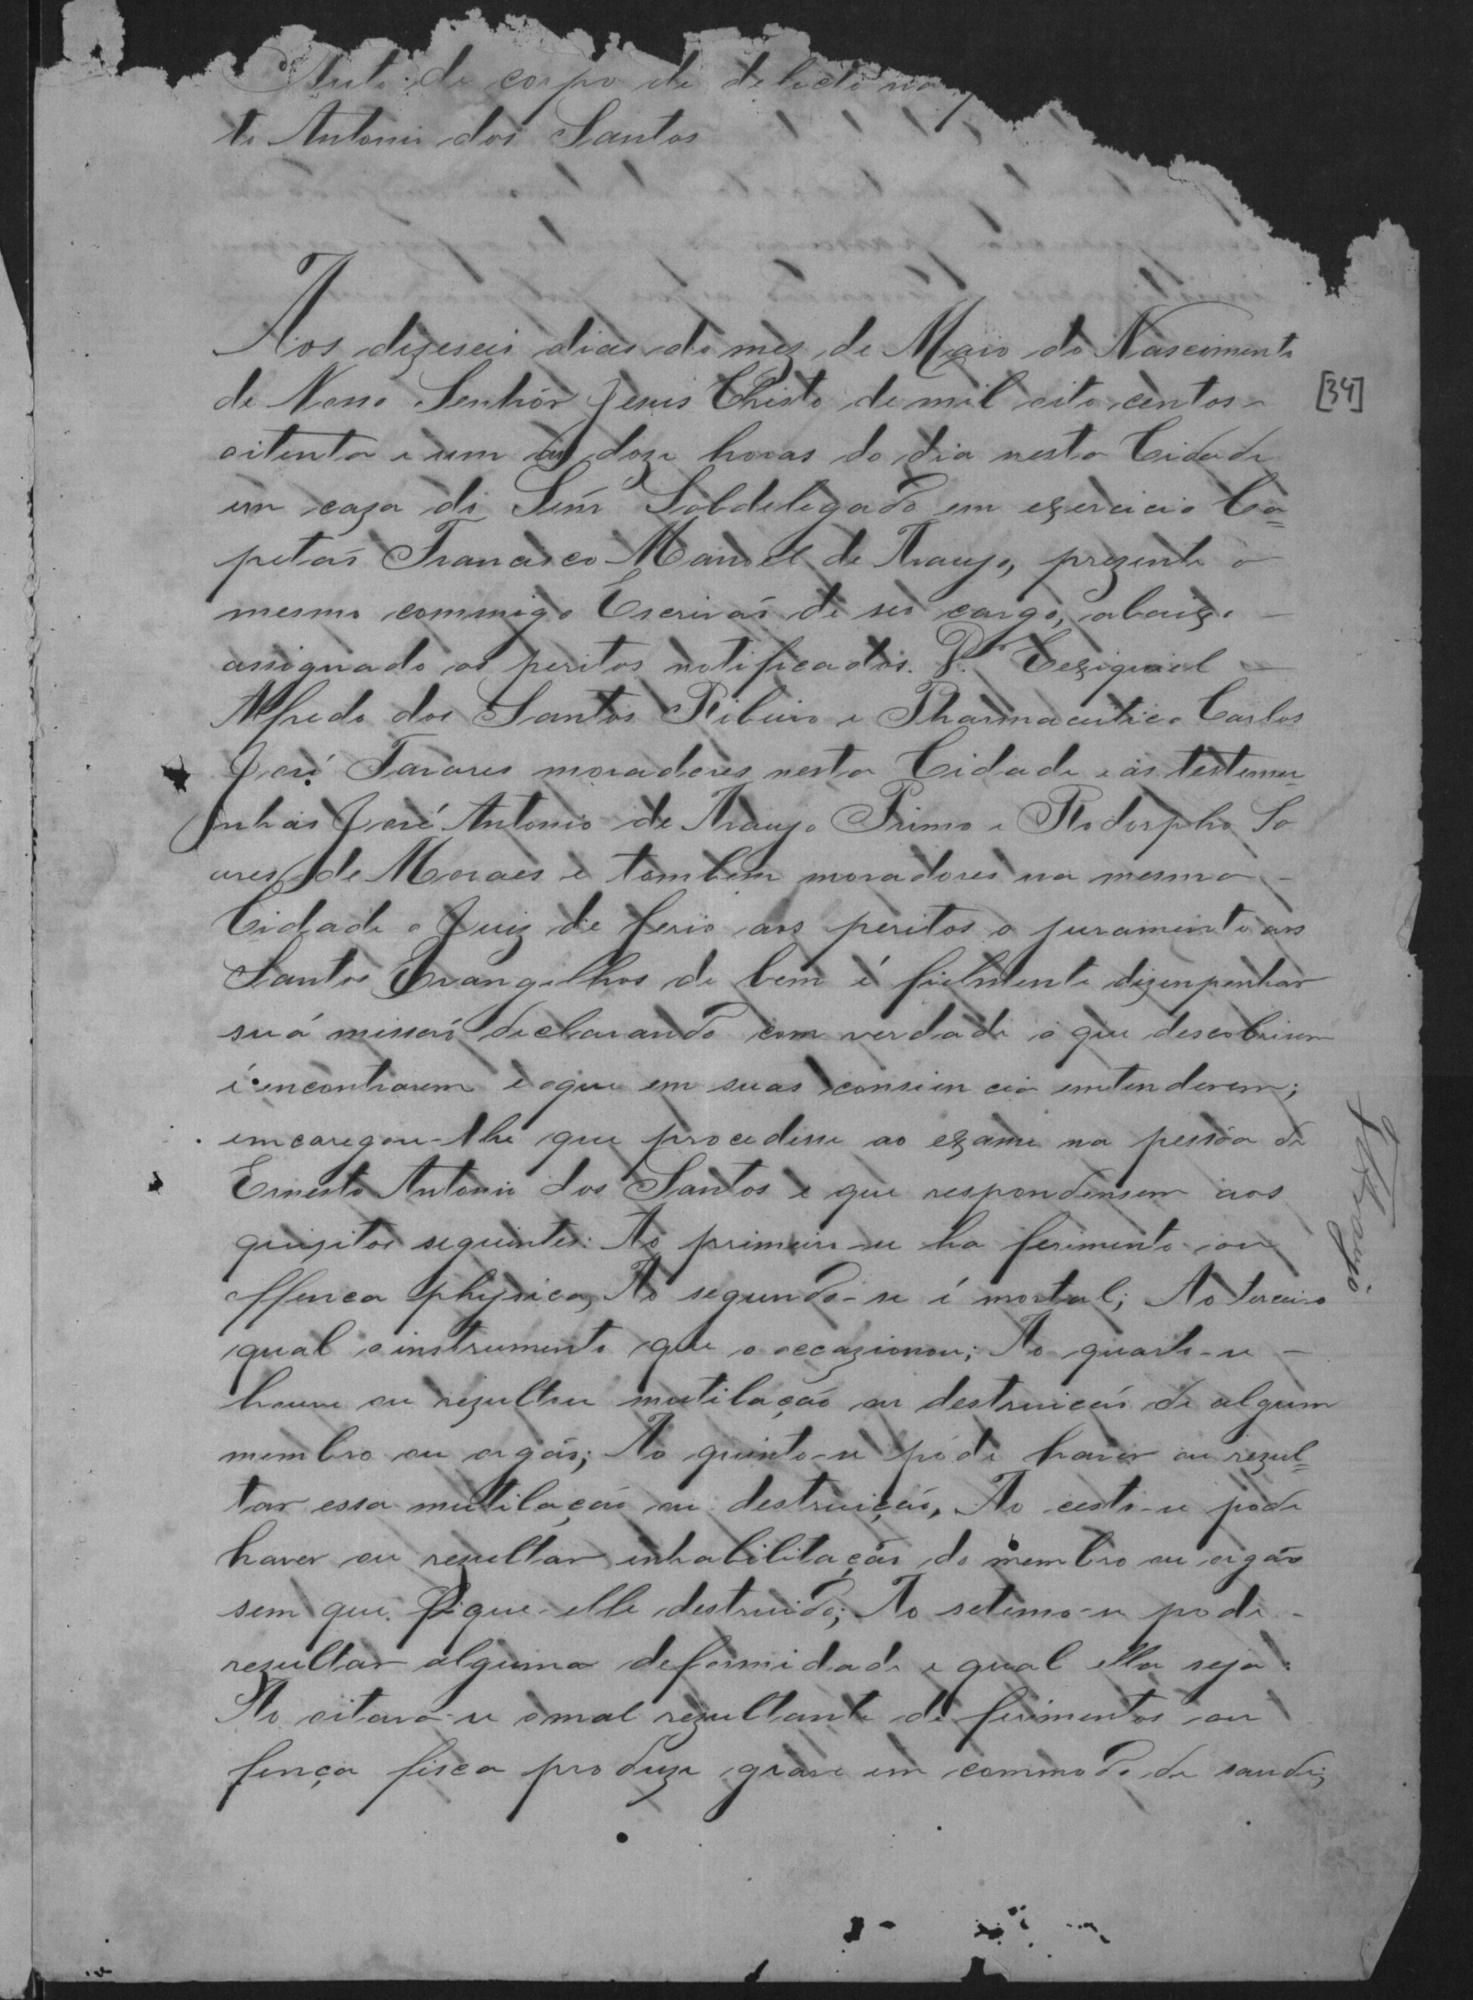 Auto de corpo de delicto na
te Antonio dos Santos
Aos dezeseis dias do mez de Maio do Nascimento
de Nosso Senhôr Jesus Christo de mil oito centos
[34]
oitenta e um as doze horas do dia nesta Cidade
em caza do Senr Sobdelegado em exercicio Ca=
petaõ Francisco Manoel de Araujo, prezente o
mesmo commigo Escrivaõ de seo cargo, abaixo
assignado os peritos notificados. Dr. Eeziquiel
Alfredo dos Santos Ribeiro e Pharmaceutico Carlos
José Tavares moradores nesta Cidade e as testemu=
nhas José Antonio de Araujo Primo e Rodorpho So
ares de Moraes e tambem moradores na mesma
Cidade o Juiz de ferio aos peritos o juramento aos
Santos Evangelhos de bem é fielmente dizenpenhar
suá missaõ declarando com verdade o que descobrirem
é encontrarem e oque em suas consiencia emtenderem;
emcaregou-lhe que procedesse ao ezame na pessôa de
Ernesto Antonio dos Santos e que respondensem aos
quizitos seguintes: Ao primeiro-se ha ferimento ou
offenca physica, Ao segundo-se é mortal; Ao terceiro
qual o instrumento que o occazionou; Ao quarto-se
houve ou rezultou mutilação ou destruicaõ de algum
membro ou orgaõ; Ao quinto-se póde haver ou rezul=
tar essa mutilaçaõ ou destruiçaõ, Ao cesto-se pode
haver ou rezultar inhabilitaçaõ do membro ou orgaõ
sem que fique elle destruido; Ao setimo-se pode
rezultar alguma deformidade e qual ella seja:
Ao oitavo-se omal rezultante do ferimento ou
fença fisca produze grave em commodo de saude;
FMAraujo